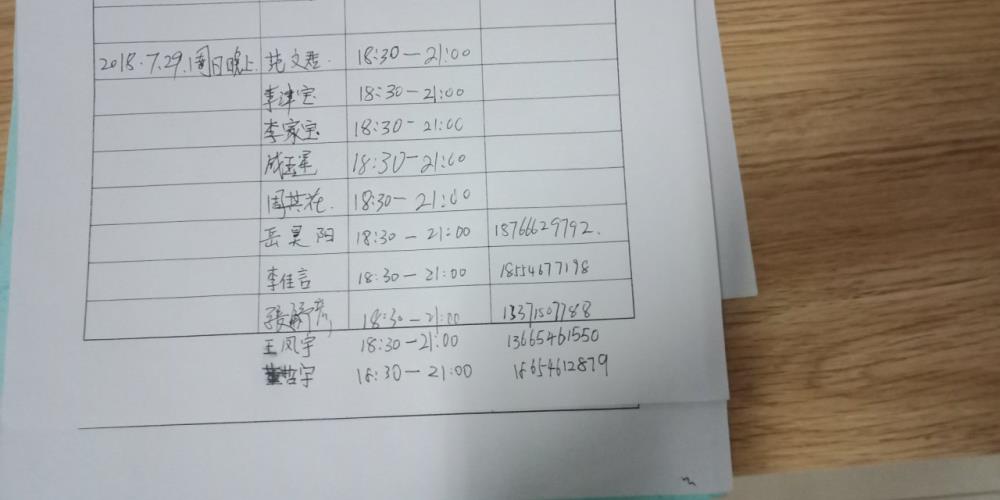 2018.7.29.周日晚上 范文君. 18:30—21:00
李津宝 18:30—21:00
李家宝 18:30-21:00
成玉军 18:30—21:00
周其花. 18:30—21:00
岳昊阳 18:30—21:00 18766629792.
李佳言 18:30—21:00 18554677198
张 18:30—21:00
王凤宇 18:30—21:00 13665461550
董哲宇 18:30—21:00 18654612879